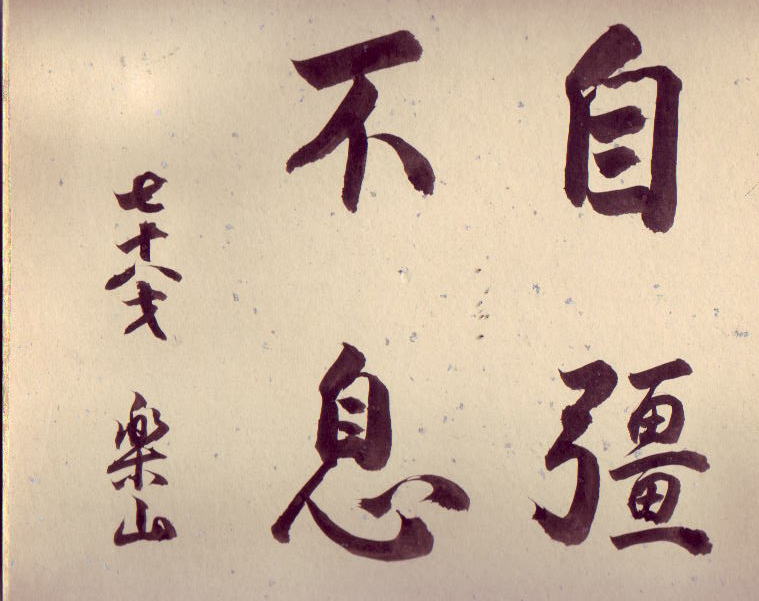 自彊
不息
七十八才 楽山